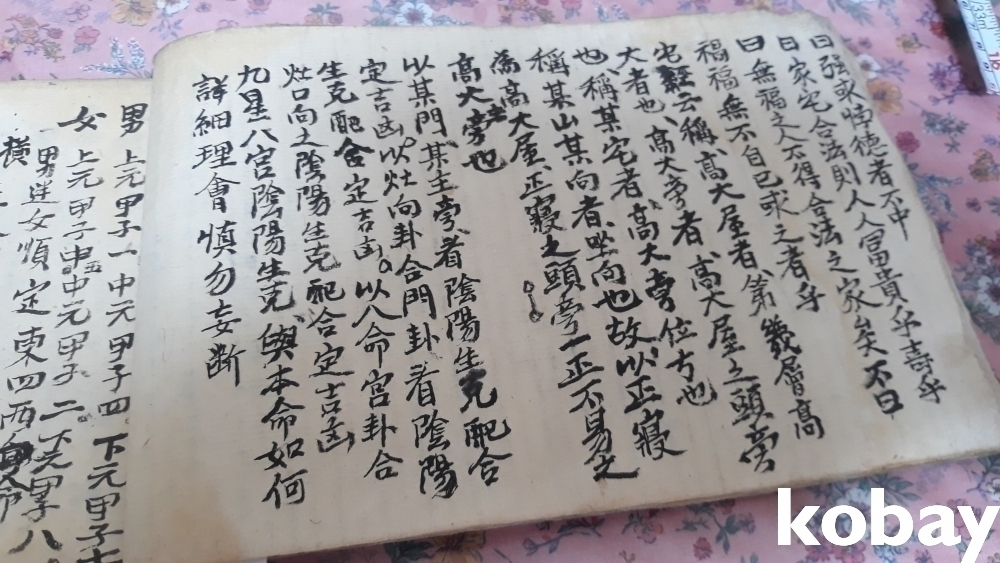 曰 强求悖德者不中
曰 家宅合法則人人富貴乎壽乎
曰 無福之人不得合法之家矣 不曰
禍福無不自己求之者乎
宅經云 稱高大屋者 第幾層高
大者也 高大旁者 高大屋之頭旁
也 稱某宅者 高大旁位方也
稱某山某向者 坐向也 故以正寢
為高大屋 正寢之頭旁 一正不易之
高大旁也
以某門某主旁看陰陽生克配合
定吉凶 以灶向卦合門卦看陰陽
生克配合定吉凶 以八命宮卦合
灶口向之陰陽生克配合定吉凶
九星八宮陰陽生克 與本命如何
詳細理會 慎勿妄断
男 上元甲子一 中元甲子四 下元甲子七
女 上元甲子五 中元甲子二 下元甲子八
男逆女順 定東四西四
kobay